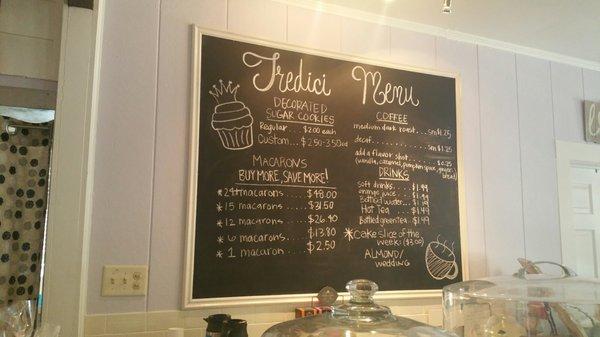 Tredici Menu
DECORATED
SUGAR COOKIES
Regular..... $2.00 each
Custom..... $2.50-3.50
MACARONS
BUY MORE, SAVE MORE!
* 24 macarons..... $48.00
* 15 macarons..... $31.50
* 12 macarons..... $26.40
* 6 macarons..... $13.80
* 1 macaron..... $2.50
COFFEE
medium dark roast..... sm $1.25
decaf............ sm $1.25
add a flavor shot............ $0.25
(vanilla, caramel, pumpkin spice, ginger-
bread)
DRINKS
soft drinks.... $1.49
orange juice.... $1.49
Bottled water... $1.49
Hot Tea.... $1.49
Bottled green tea.. $1.49
*cake slice of the
week: ($3.00)
ALMOND/
wedding